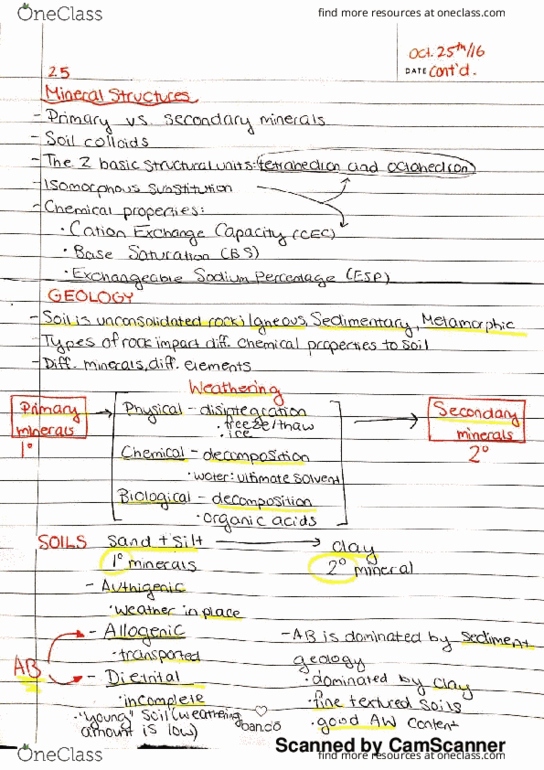 OneClass
find more resources at oneclass.com
Oct. 25th/16
DATE cont'd.
25
Mineral Structures
- Primary vs. secondary minerals
- Soil colloids
- The 2 basic structural units: tetrahedron and octahedron
- Isomorphous substitution
- Chemical properties:
• Cation Exchange Capacity (CEC)
• Base Saturation (BS)
• Exchangeable Sodium Percentage (ESP)
GEOLOGY
- Soil is unconsolidated rock: Igneous Sedimentary, Metamorphic
- Types of rock impart diff. chemical properties to soil
- Diff. minerals, diff. elements
Weathering
Primary minerals 1°
Physical - disintegration
• freeze/thaw
• ice
Chemical - decomposition
• water: ultimate solvent
Biological - decomposition
• organic acids
Secondary minerals 2°
SOILS sand + silt clay
1° minerals 2° mineral
- Authigenic
• weather in place
AB
- Allogenic
• transported
- Dietrital
• incomplete
• "young" soil (weathering amount is low)
- AB is dominated by sediment geology
• dominated by clay
• fine textured soils
• good AW content
OneClass
Scanned by CamScanner
find more resources at oneclass.com